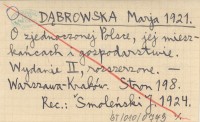 DĄBROWSKA Marja 1921.
O zjednoczonej Polsce, jej miesz-
kańcach i gospodarstwie.
Wydanie II, rozszerzone. —
Warszawa-Kraków. Stron 198.
Rec.: Smoleński J. 1924.